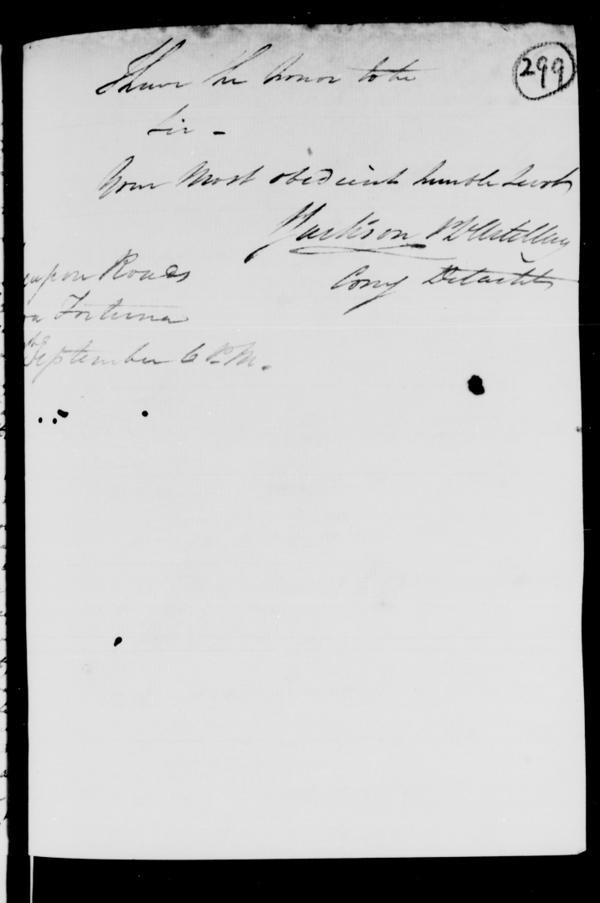 299
I have the honor to be
Sir -
Your Most obedient humble Servt
Jackson Rl Artillery
Comg Detacht
Roads
Fortuna
September 6 P.M.